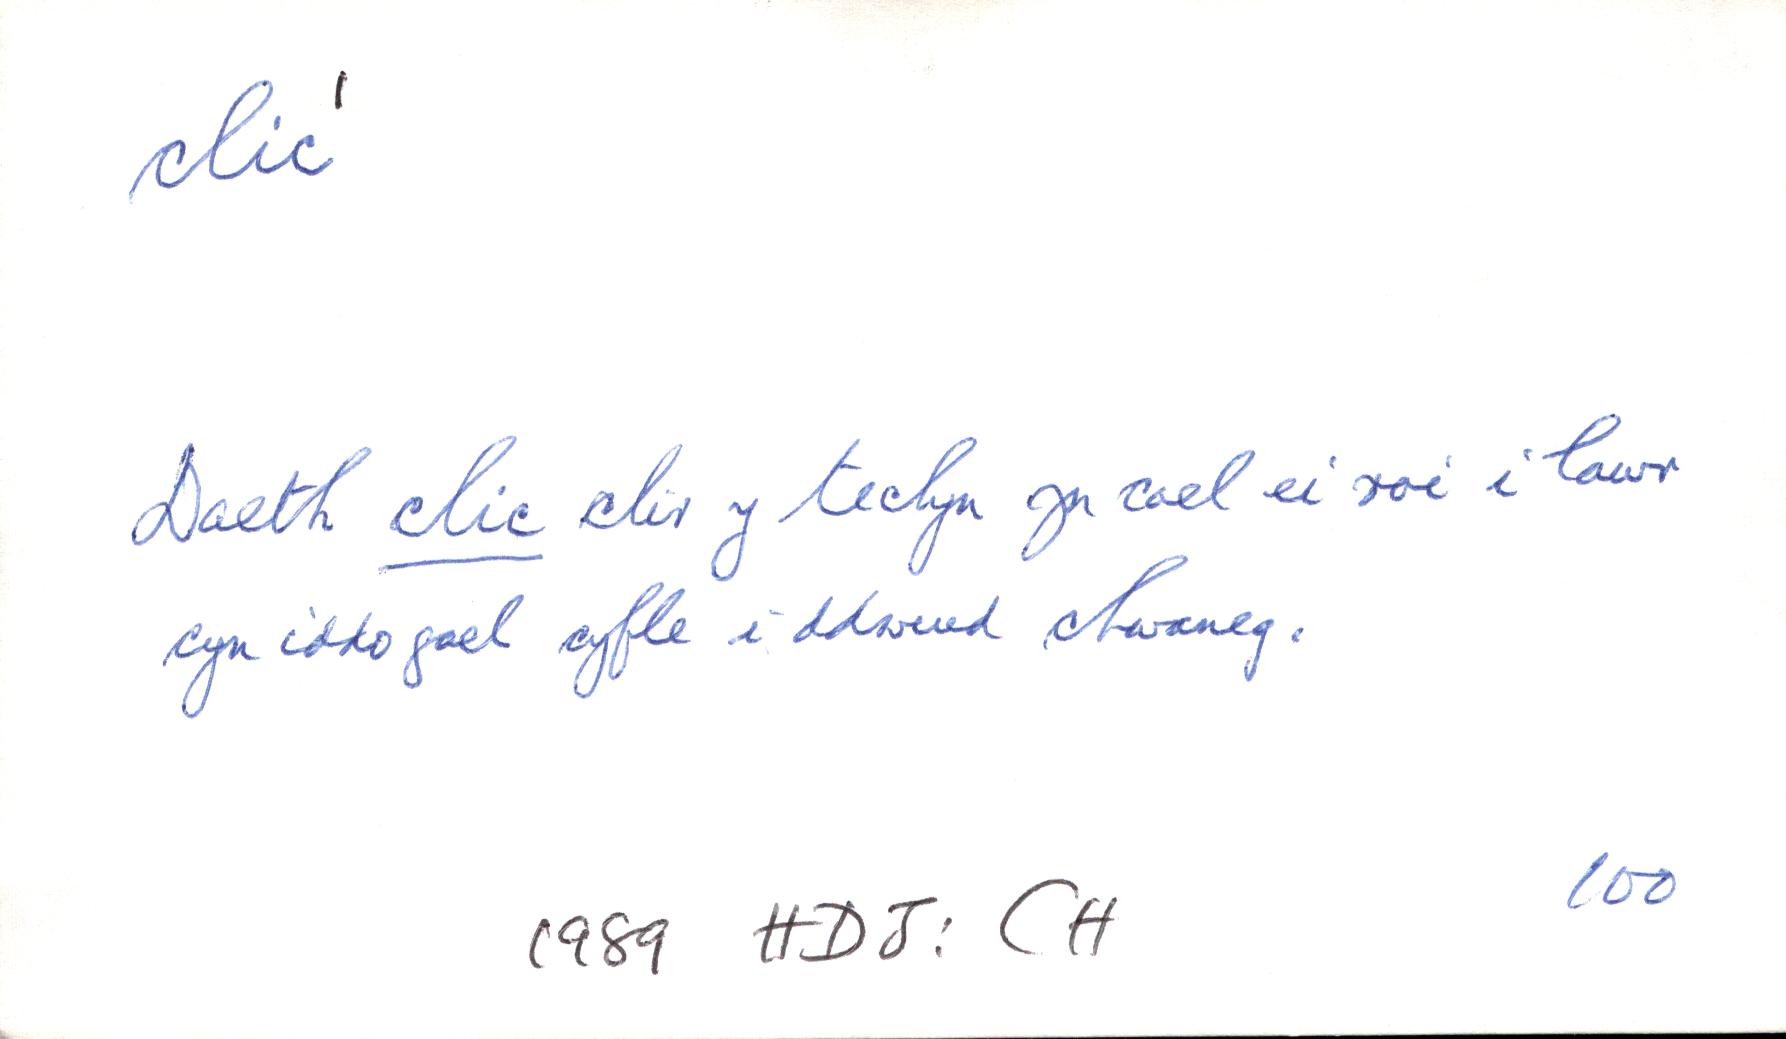 clic¹
Daeth clic clir y teclyn yn cael ei roi i lawr
cyn iddo gael cyfle i ddweud chwaneg.
100
1989 HDJ: CH